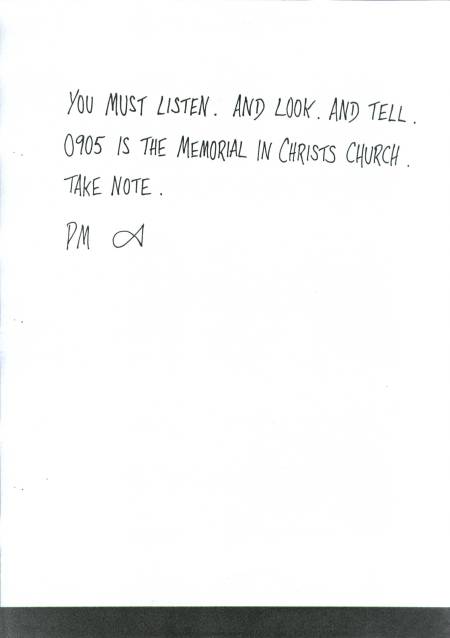 YOU MUST LISTEN. AND LOOK. AND TELL.
0905 IS THE MEMORIAL IN CHRISTS CHURCH.
TAKE NOTE.
PM